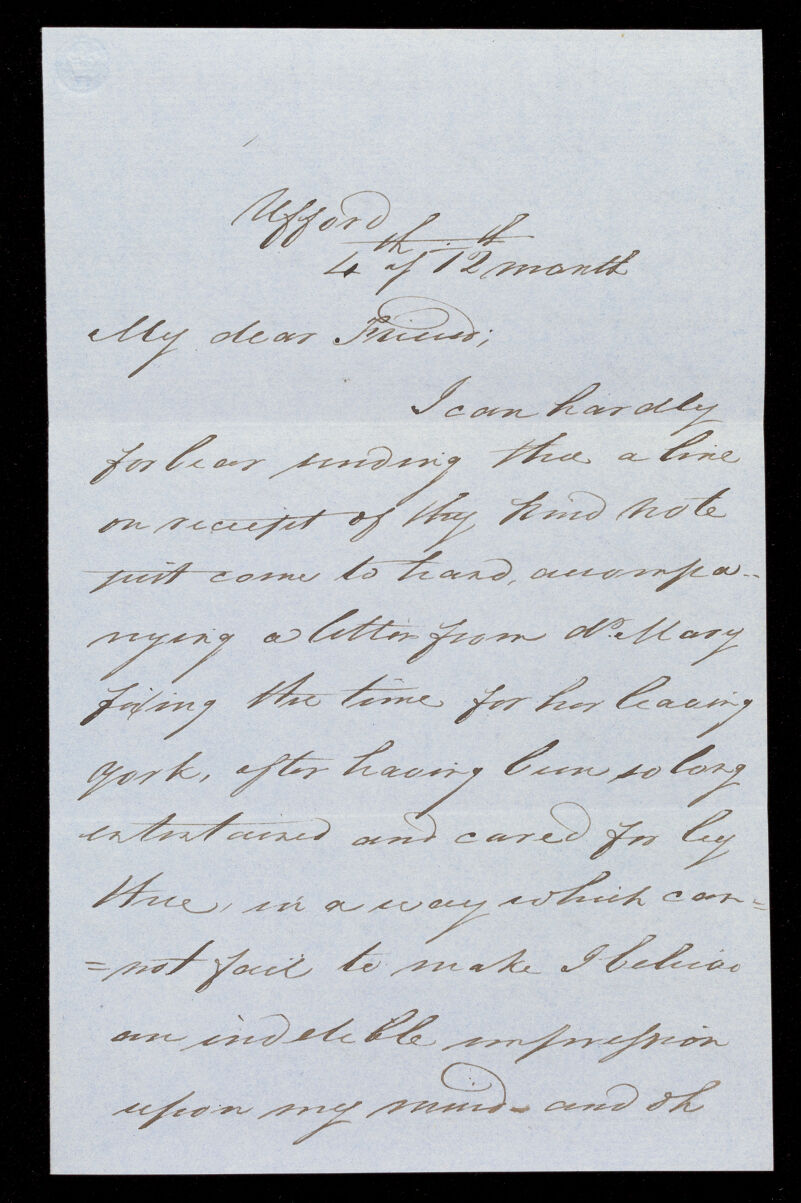 Ufford
4th of 12th month
My dear Friend;
I can hardly
forbear sending thee a line
on receipt of thy kind note
just come to hand, accompa-
nying a letter from dr. Mary
fixing the time for her leaving
York, after having been so long
entertained and cared for by
thee, in a way which can=
=not fail to make I believe
an indelible impression
upon my mind - and oh